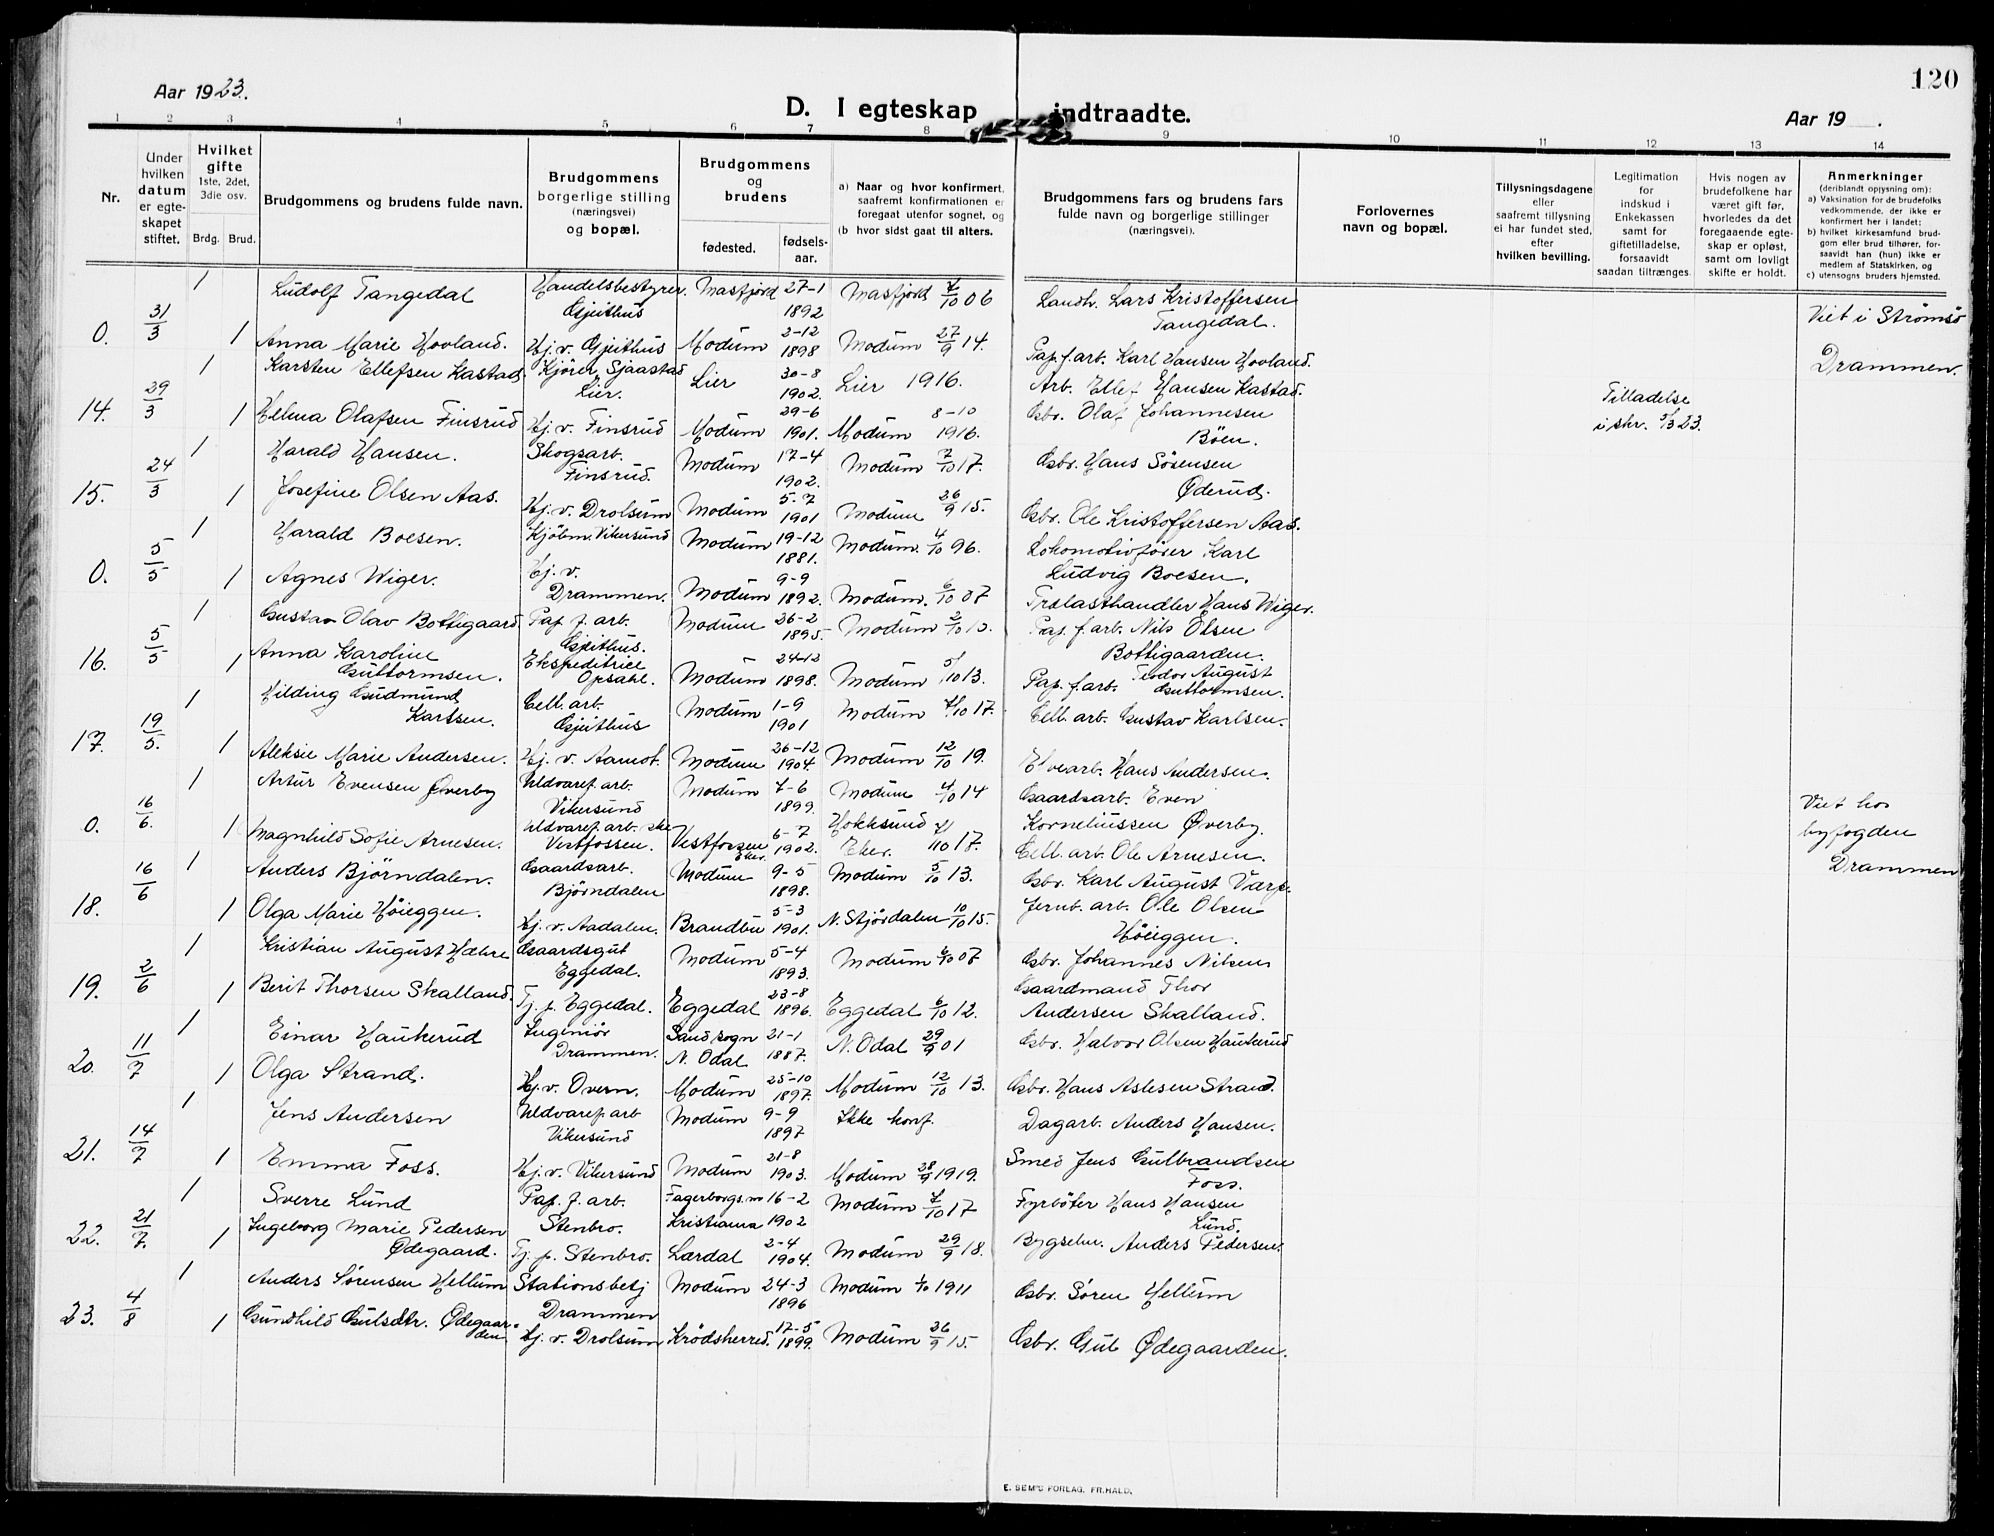 120
Aar 1923.
D. I egteskap indtraadte.
Aar 19 .
1 2 3 4 5 6 7 8 9 10 11 12 13 14
Nr.
Under hvilken datum er egteskapet stiftet.
Hvilket gifte 1ste, 2det, 3die osv.
Brdg. Brud.
Brudgommens og brudens fulde navn.
Brudgommens borgerlige stilling (næringsvei) og bopæl.
Brudgommens og brudens
fødested. fødselsaar.
a) Naar og hvor konfirmert, saafremt konfirmationen er foregaat utenfor sognet, og
(b hvor sidst gaat til alters.
Brudgommens fars og brudens fars fulde navn og borgerlige stillinger (næringsvei).
Forlovernes navn og bopæl.
Tillysningsdagene eller saafremt tillysning ei har fundet sted, efter hvilken bevilling.
Legitimation for indskud i Enkekassen samt for giftetilladelse, forsaavidt saadan tiltrænges.
Hvis nogen av brudefolkene har været gift før, hvorledes da det foregaaende egteskap er opløst, samt om lovligt skifte er holdt.
Anmerkninger (deriblandt opysning om): a) Vaksination for de brudefolks vedkommende, der ikke er konfirmert her i landet; b) hvilket kirkesamfund brudgom eller brud tilhører, forsaavidt han (hun) ikke er medlem af Statskirken, og c) utensogns bruders hjemsted.
1 Ludolf Tangedal Handelsbestyrer Gjeithus Masfjord 27-1 1892 Masfjord 06 Landh. Lars Kristoffersen Tangedal.
0. 31/3 1 Anna Marie Hovland. Hj. v. Gjeithus Modum 2-12 1898 Modum 27/9 14. Pap.f.arb. Karl Hansen Hovland. Viet i Strømsø Drammen.
1 Karsten Ellefsen Kastad Kjører Sjaastad Lier. Lier 30-8 1902. Lier 1916. Arb. Ellef Hansen Kastad.
14. 29/3 1 Helma Olafsen Finsrud Hj. v. Finsrud Modum 29-6 1901. Modum 8-10 1916. Gbr. Olaf Johannesen Böen. Tilladelse i skr. 23.
1 Harald Hansen. Skogsarb. Finsrud. Modum 17-4 1902. Modum 7/10 17. Gbr. Hans Sörensen Øderud.
15. 24/3 1 Josefine Olsen Aas. Hj. v. Drolsum Modum 5-7 1901 Modum 26/9 15. Gbr. Ole Kristoffersen Aas.
1 Harald Boesen. Kjöbm. Vikersund Modum 19-12 1881. Modum. 4/10 96. Lokomotivfører Karl Ludvig Boesen.
0. 5/5 1 Agnes Wiger. Hj. v. Drammen. Modum 9-9 1892. Modum. 6/10 07 Trælasthandler Hans Wiger.
1 Gustav Olav Bottigaard. Pap. f. arb. Gjeithus. Modum 26-2 1895. Modum 2/10 Pap. f. arb. Nils Olsen Bottigaarden.
16. 5/5 1 Anna Karoline Guttormsen. Ekspeditrice Opsahl. Modum 24-12 1898. Modum 5/10 13. Pap. f.arb. Teodor August Guttormsen.
1 Hilding Gudmund Karlsen. Cell. arb. Gjeithus Modum 1-9 1901 Modum 7/10 17. Cell. arb. Gustav Karlsen.
17. 19/5. 1 Aleksie Marie Andersen. Hj. v. Aamot. Modum 26-12 1904. Modum 12/10 19. Elvearb. Hans Andersen.
1 Artur Evensen Øverby Uldvaref. arb. Vikersund Modum 7-6 1899. Modum 4/10 14 Gaardsarb. Even Korneliussen Øverby.
0. 16/6. 1 Magnhild Sofie Arnesen. Uldvaref. arb. ske Vestfossen. Vestfossen Eker. 6-7 1902. Hokksund Eker. 7/10 17. Cell. arb. Ole Arnesen. Viet hos byfogden Drammen
1 Anders Björndalen. Gaardsarb. Björndalen Modum 9-5 1898. Modum 5/10 13. Gbr. Karl August Varp.
18. 16/6 1 Olga Marie Höieggen. Hj. v. Aadalen. Brandbu 5-3 1901. N. Stjördalen 10/10 15. Jernb. arb. Ole Olsen Höieggen.
1 Kristian August Hæhre Gaardsgut Eggedal. Modum 5-4 1893. Modum 6/10 07 Gbr. Johannes Nilsen
19. 2/6 1 Berit Thorsen Skalland. Tj. p. Eggedal. Eggedal 23-8 1896. Eggedal 6/10 12. Gaardmand Thor Andersen Skalland.
1 Einar Haukerud Ingeniør Drammen. Sand sogn N. Odal 21-1 1887. N. Odal 29/9 01 Gbr. Halvor Olsen Haukerud
20. 11/7 1 Olga Strand. Hj. v. Overn. Modum 25-10 1897. Modum 12/10 13. Gbr. Hans Aslesen Strand.
1 Jens Andersen Uldvaref. arb Vikersund Modum 9-9 1897 Ikke konf. Dagarb. Anders Hansen.
21. 14/7 1 Emma Foss. Hj. v. Vikersund Modum 21-8 1903. Modum 28/9 1919. Smed Jens Gulbrandsen Foss.
1 Sverre Lund Pap. f. arb. Stenbro. Fagerborgs.m Kristiania 16-2 1902 Modum 7/10 17 Fyrböter Hans Hansen Lund.
22. 21/7. 1 Ingeborg Marie Pedersen Ødegaard. Tj. p. Stenbro. Lærdal 2-4 1904. Modum 29/9 18. Bygselm. Anders Pedersen.
1 Anders Sørensen Hellum Stationsbetj Drammen Modum 24-3 1896 Modum 1/10 1911 Gbr. Sören Hellum
23. 4/8 1 Gundhild Gulsdtr. Ødegaarden Hj. v. Drolsum Krödsherred. 17-5 1899. Modum 26/9 15. Gbr. Gul Ødegaarden.
E. SEM'S FORLAG. FR.HALD.